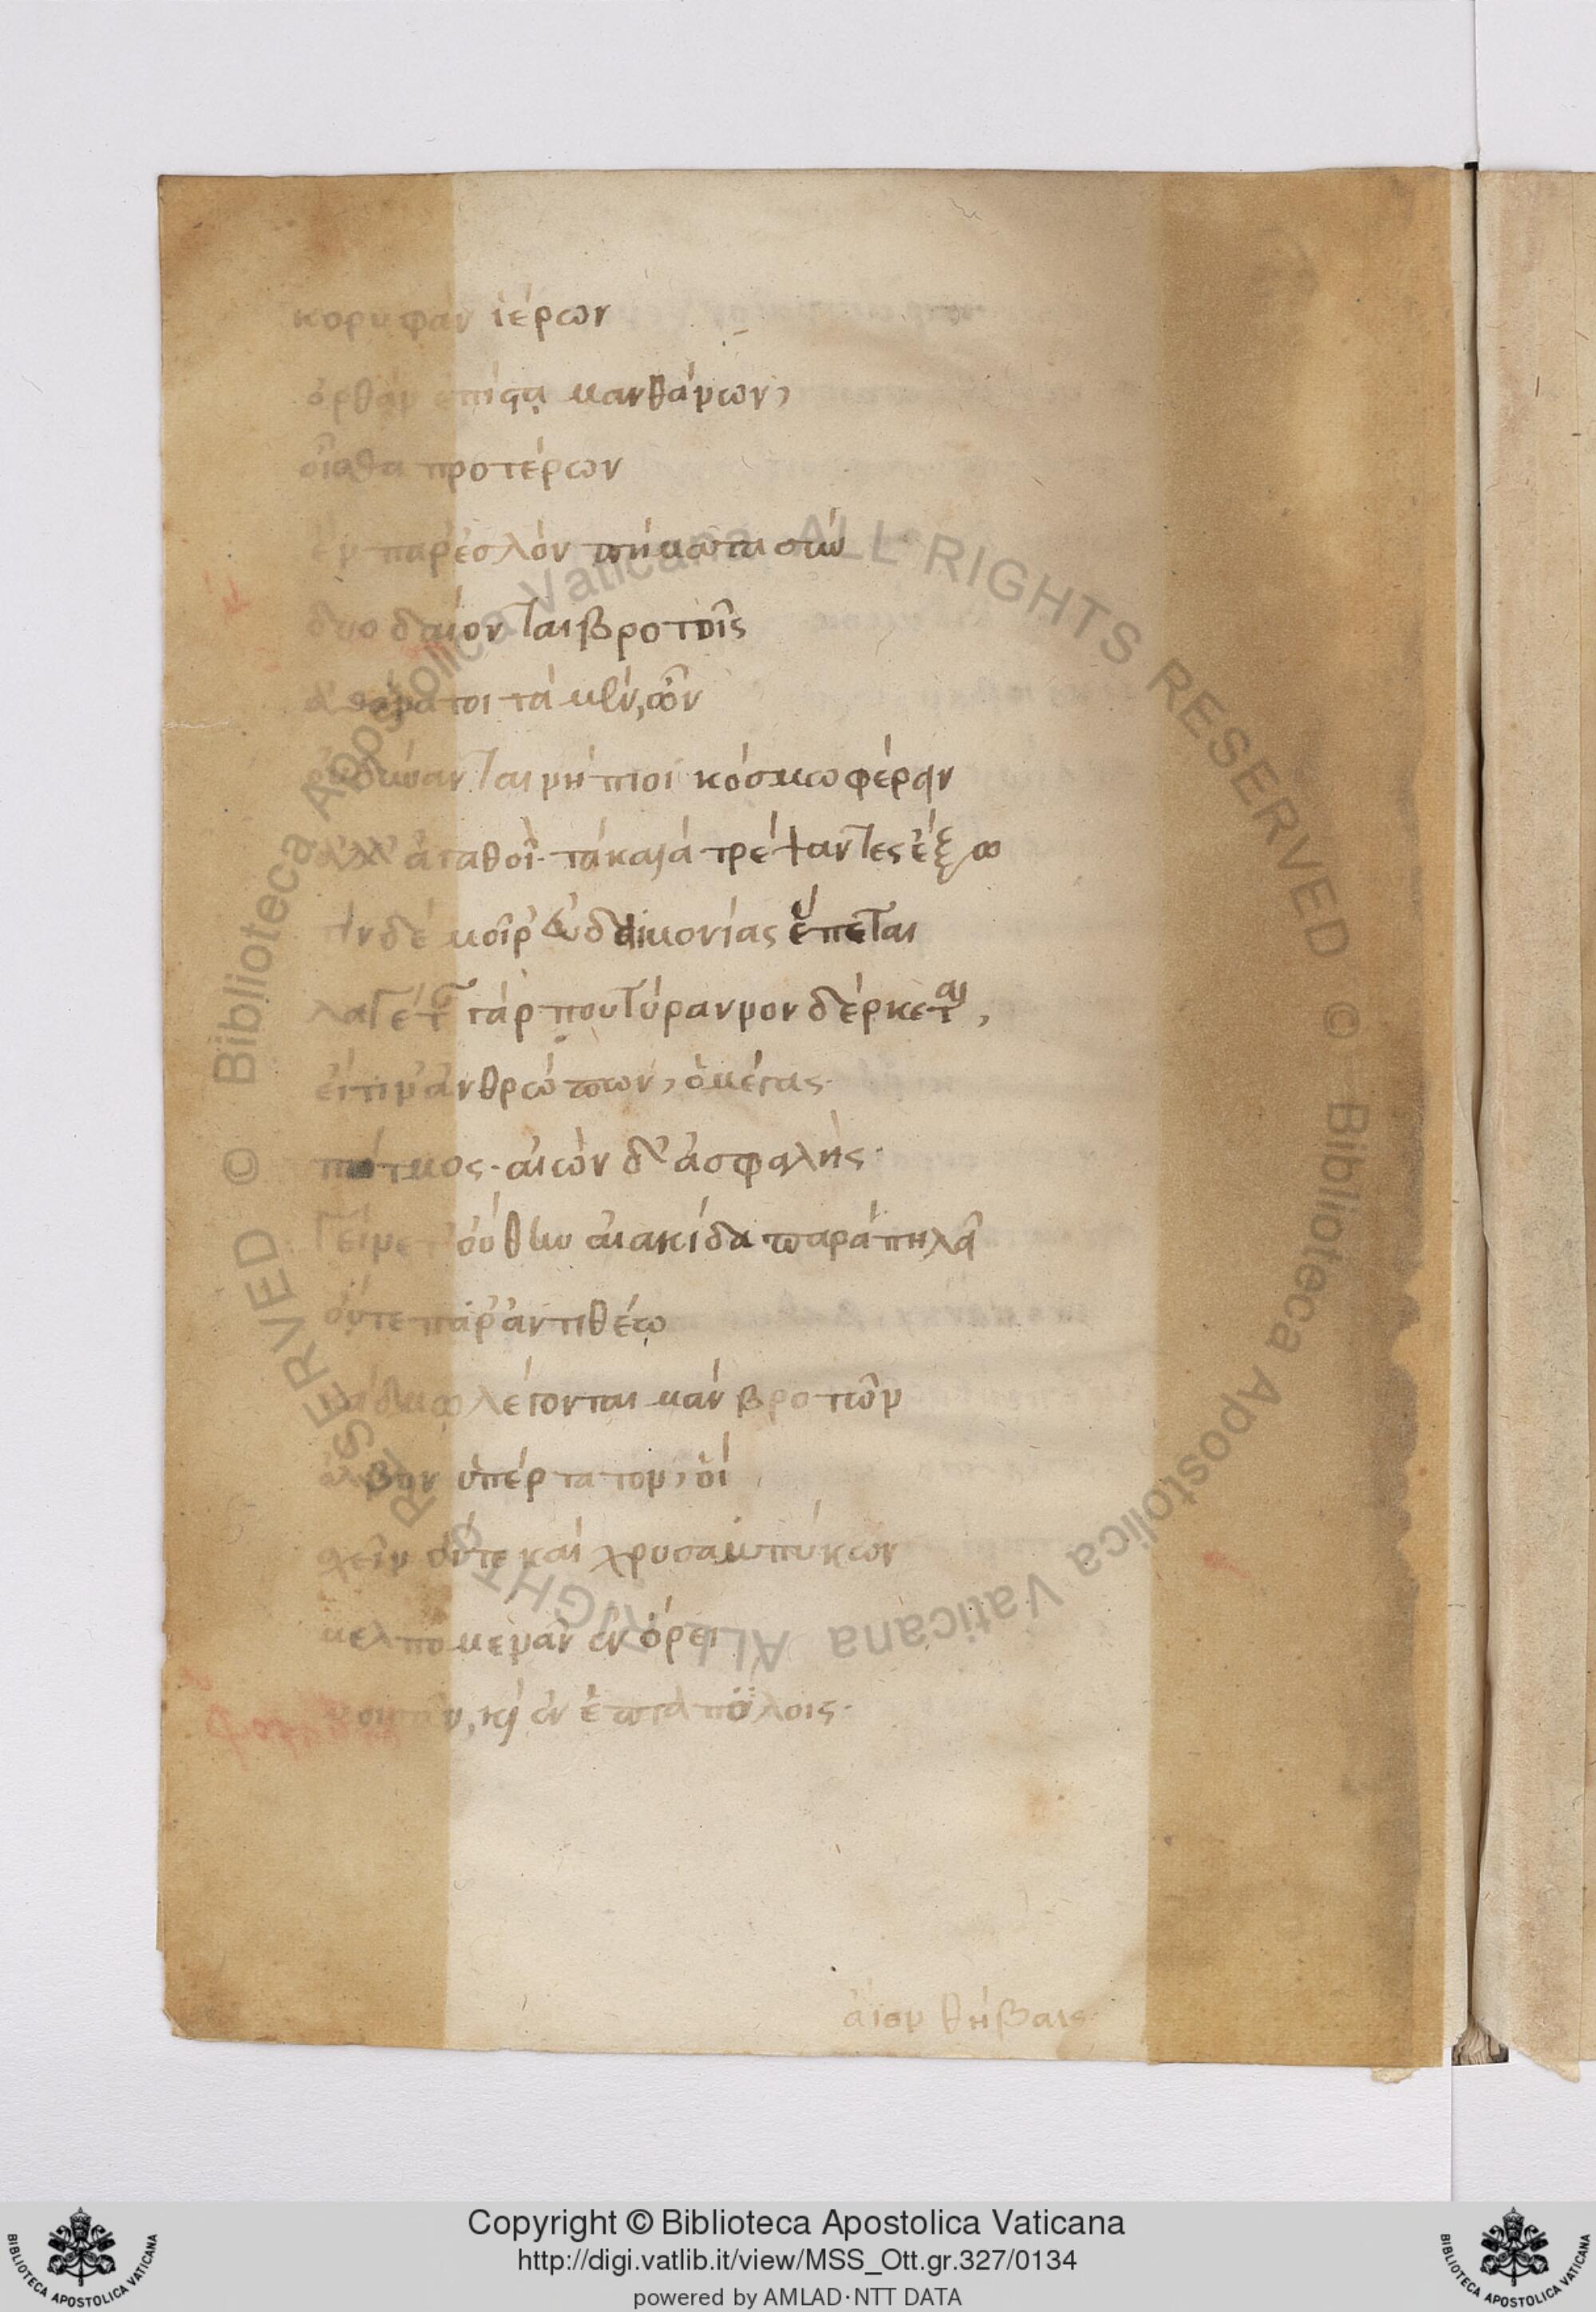 κορυφὰν ἱέρων
ὀρθὰν ἐπίστᾳ μανθάνων,
οἶσθα προτέρων
ἓν παρ' ἐσλὸν πήματα σὺν
δύο δαίονται βροτοῖς
ἀθάνατοι τὰ μὲν, ὦν
οὐ δύνανται νήπιοι κόσμω φέρειν
ἀλλ' ἀγαθοὶ· τὰ καλὰ τρέψαντες ἔξω
τὶν δὲ μοῖρ' εὐδαιμονίας ἕπεται
λαγέταν γάρ που τύραννον δέρκεται,
εἴ τιν' ἀνθρώπων, ὁ μέγας
πότμος· αἰὼν δ' ἀσφαλὴς·
γείνετ' οὐθ' ἐν αἰακίδα παρὰ πηλεῖ
οὔτε παρ' ἀντιθέῳ
κάδμῳ λέγονται μὰν βροτῶν
ὄλβον ὑπέρτατον, οἵ
σχεῖν οὔτε καὶ χρυσαμπύκων
μελπομενᾶν ἐν ὄρει
μοισᾶν, καὶ ἐν ἑπταπύλοις·
ἄϊον θήβαις·
Biblioteca Apostolica Vaticana ALL RIGHTS RESERVED © Biblioteca Apostolica Vaticana ALL RIGHTS RESERVED ©
Copyright © Biblioteca Apostolica Vaticana
http://digi.vatlib.it/view/MSS_Ott.gr.327/0134
powered by AMLAD·NTT DATA
BIBLIOTECA APOSTOLICA VATICANA
BIBLIOTECA APOSTOLICA VATICANA